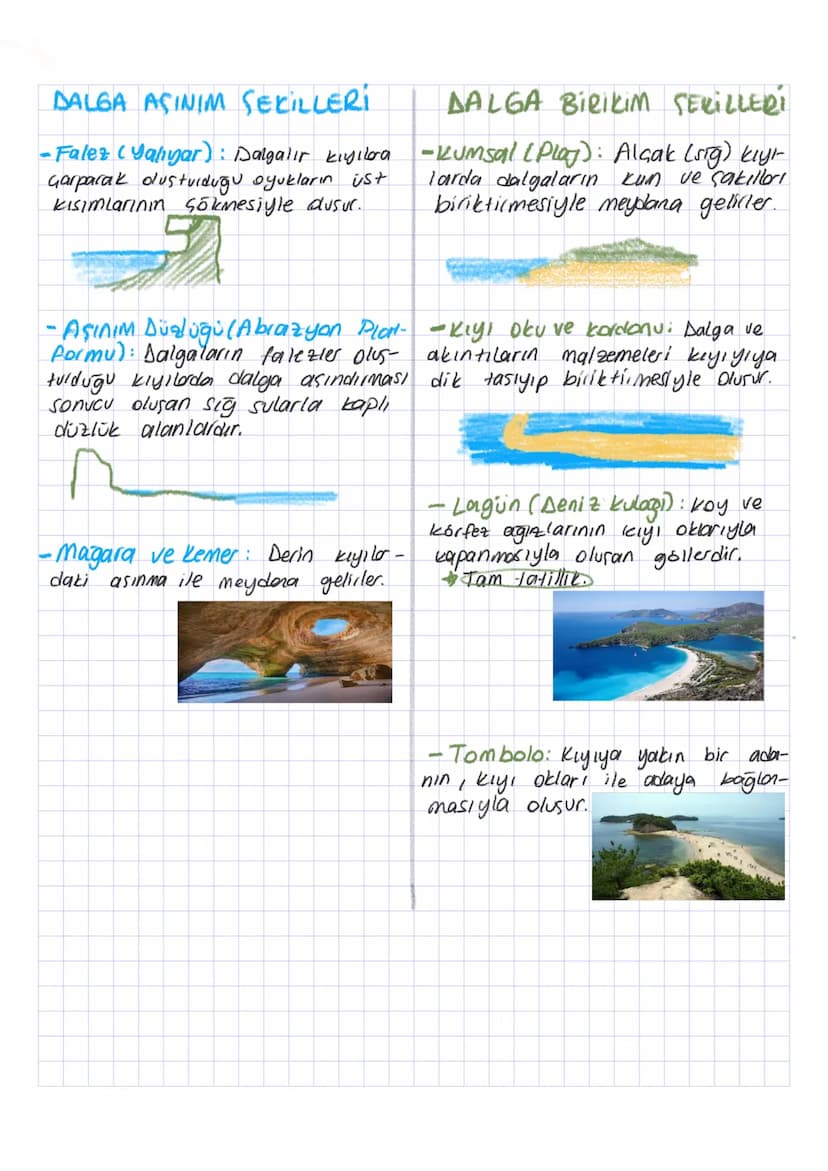 DALGA AŞINIM ŞEKİLLERİ
- Falez (Yalıyar) : Dalgalır kıyılara
çarparak oluşturduğu oyukların üst
kısımlarının çökmesiyle olusur.
- Aşınım Düzlüğü (Abrazyon Plat-
formu) : Dalgaların falezler oluş-
turduğu kıyılarda dalga aşındırması
sonucu oluşan sığ sularla kaplı
düzlük alanlardır.
- Mağara ve Kemer : Derin kıyılar-
daki aşınma ile meydana gelirler.
DALGA BİRİKİM ŞEKİLLERİ
- Kumsal (Plaj) : Alçak (sığ) kıyı-
larda dalgaların kum ve çakılları
biriktirmesiyle meydana gelirler.
- Kıyı Oku ve Kordonu : Dalga ve
akıntıların malzemeleri kıyıyıya
dik tasıyıp biriktirmesiyle oluşur.
- Lagün (Deniz Kulağı) : Koy ve
körfez ağızlarının kıyı oklarıyla
kapanmasıyla oluşan göllerdir.
→ Tam tatillik.
- Tombolo : Kıyıya yakın bir ada-
nın, kıyı okları ile adaya bağlan-
masıyla oluşur.